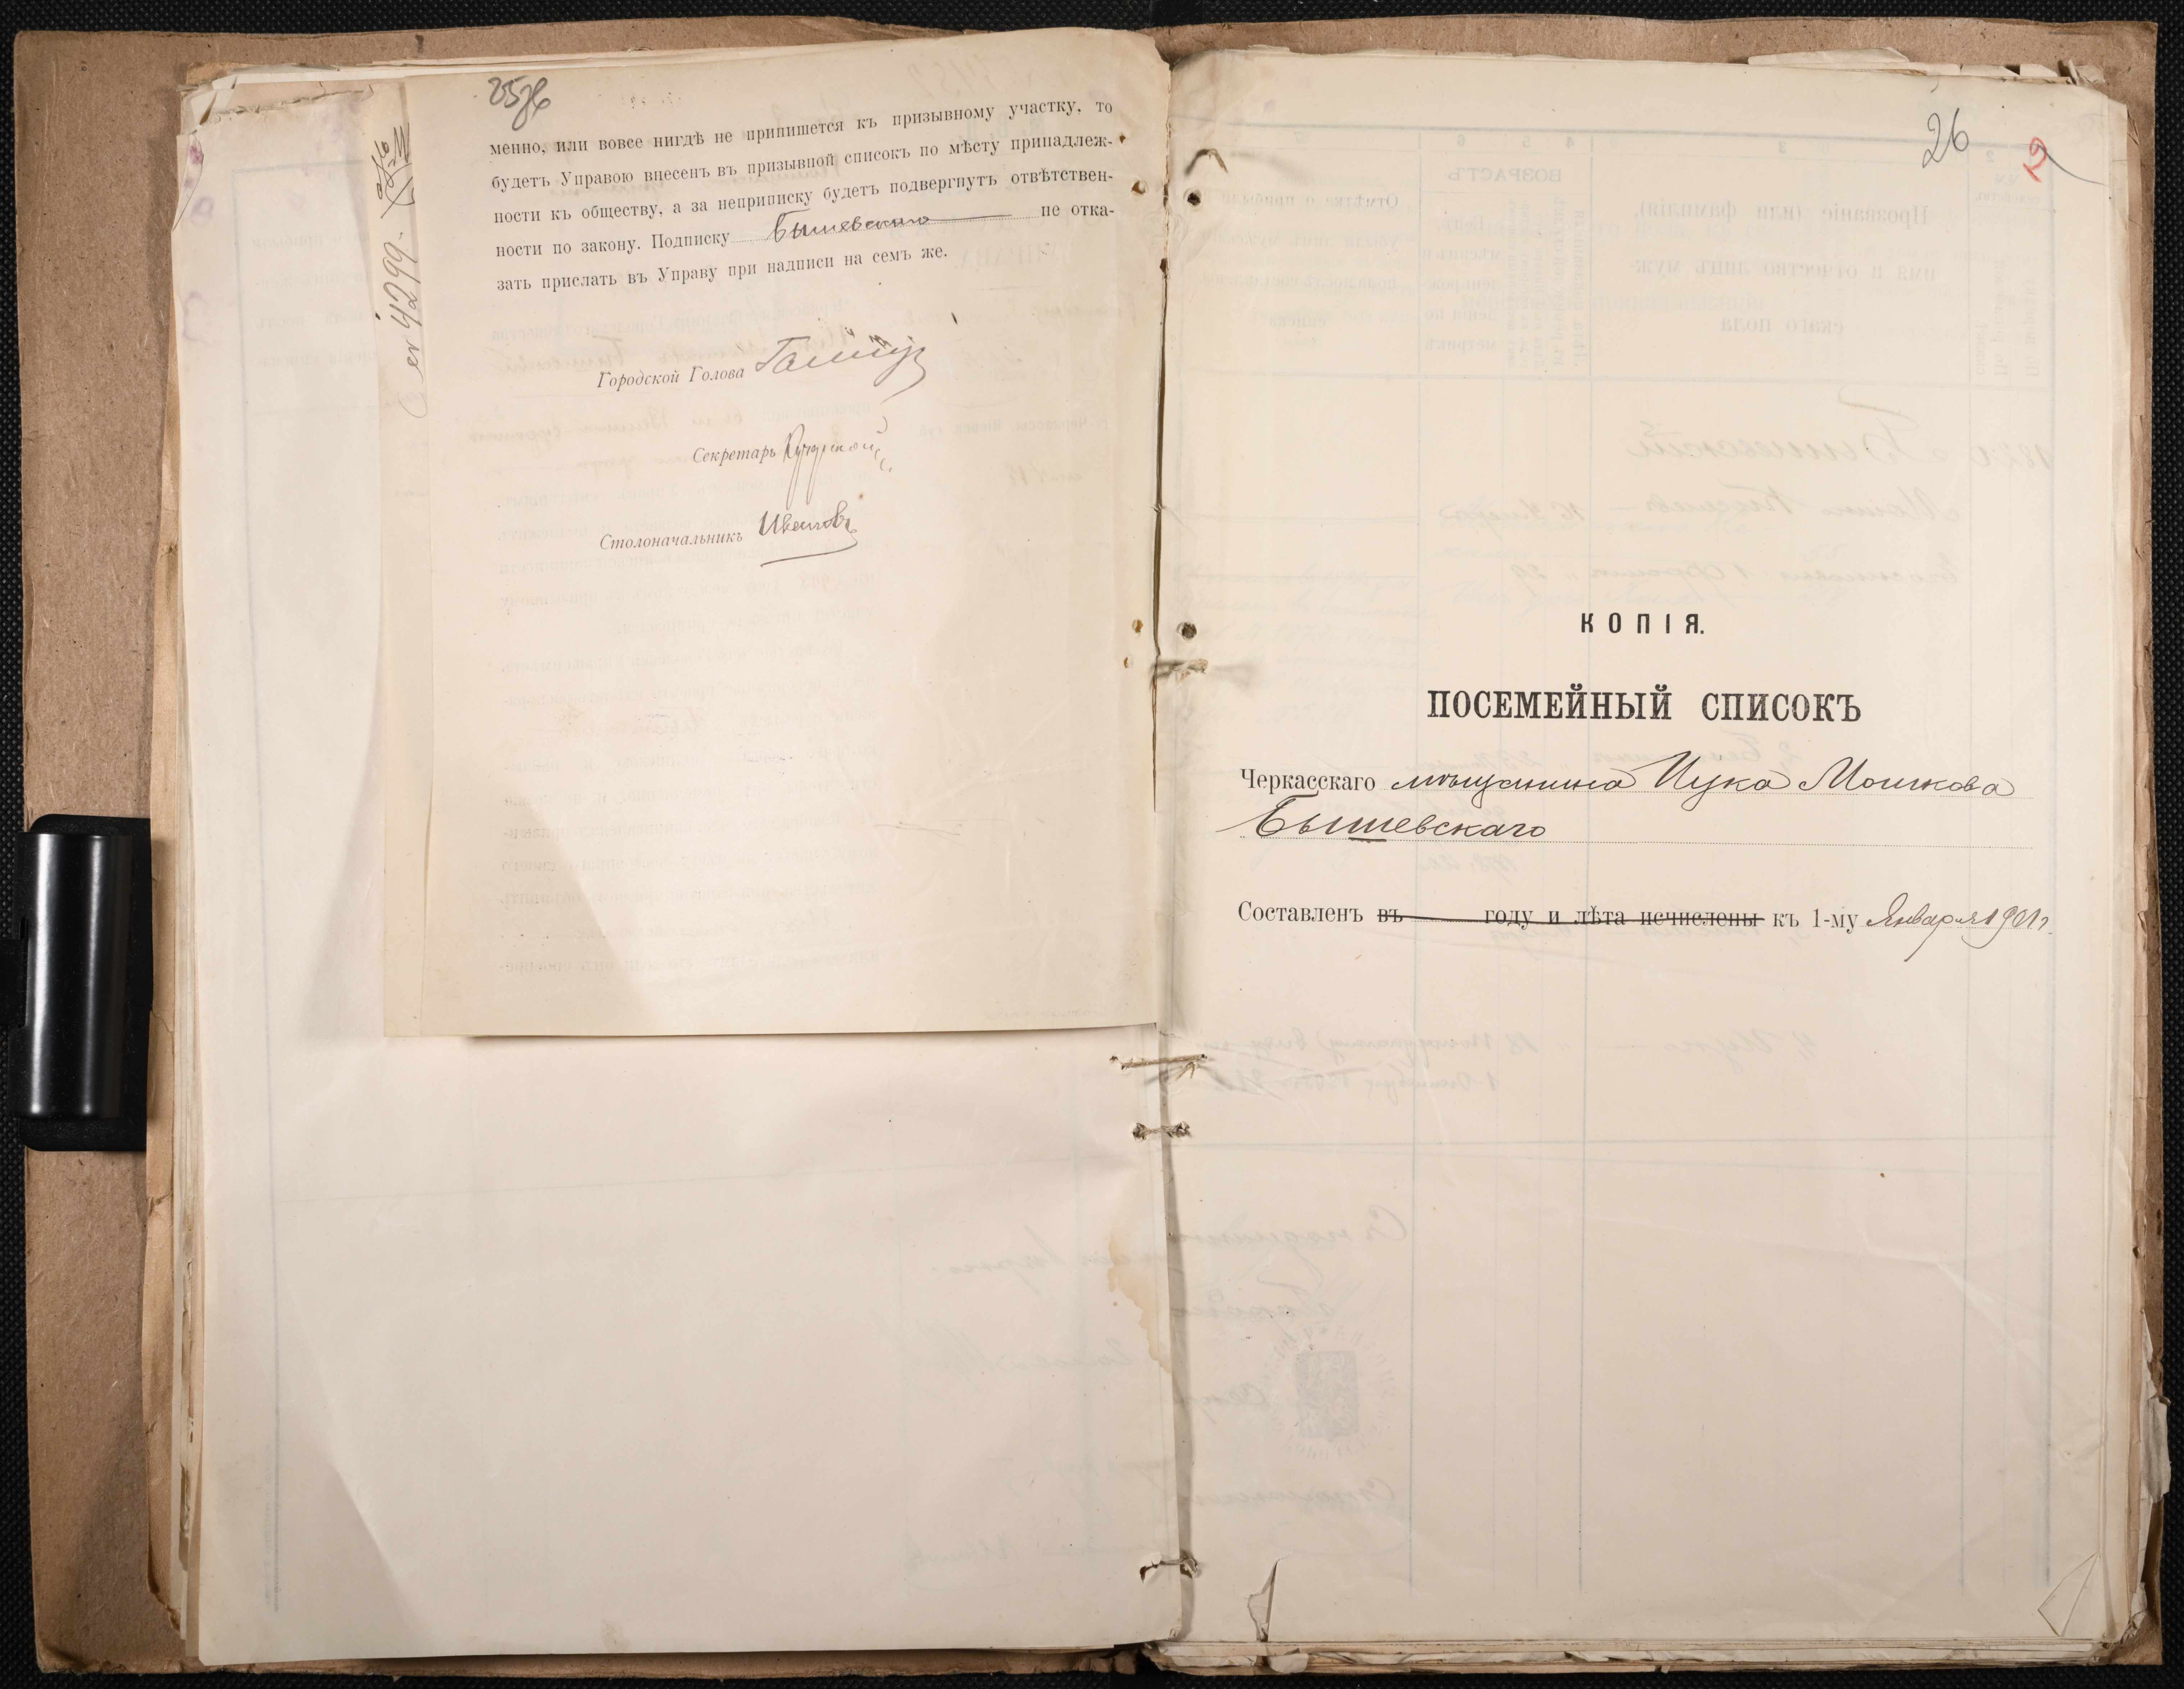 менно, или вовсе нигдѣ не припишется къ призывному участку, то
будетъ Управою внесенъ въ призывной списокъ по мѣсту принадлеж-
ности къ обществу, а за неприписку будетъ подвергнутъ отвѣтствен-
ности по закону. Подписку Бышевскаго не отка-
зать прислать въ Управу при надписи на семъ же.
Городской Голова
Секретарь
Столоначальникъ Ивановъ
4299
26
2
КОПІЯ.
ПОСЕМЕЙНЫЙ СПИСОКЪ
Черкасскаго мѣщанина Ицка Мошкова
Бышевскаго
Составленъ въ году и лѣта исчислены къ 1-му Января 1901 г.